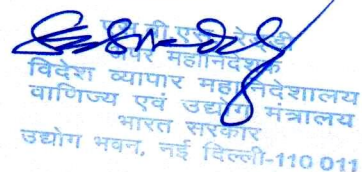 अपर महानिदेशक
विदेश व्यापार महानिदेशालय
वाणिज्य एवं उद्योग मंत्रालय
भारत सरकार
उद्योग भवन, नई दिल्ली-110 011